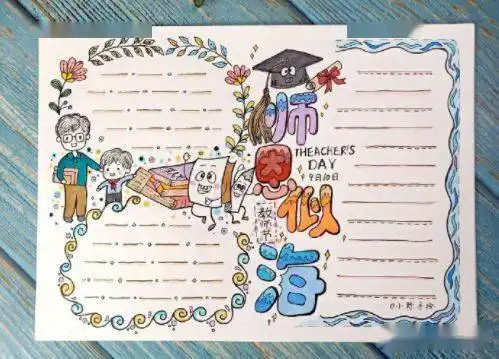 师
恩
似
海
THEACHER'S
DAY
9月10日
教师节